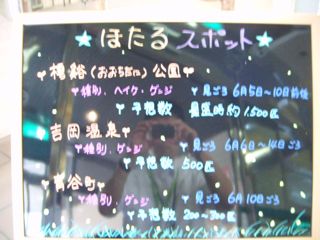 ★ほたるスポット★
樗谿(おおちだに)公園
種別、ヘイケ・ゲンジ 見ごろ 6月5日〜10日前後
予想数 最盛時約1,500匹
吉岡温泉
種別、ゲンジ 見ごろ 6月6日〜14日ごろ
予想数 500匹
青谷町
種別、ゲンジ 見ごろ 6月10日ごろ
予想数 200〜300匹